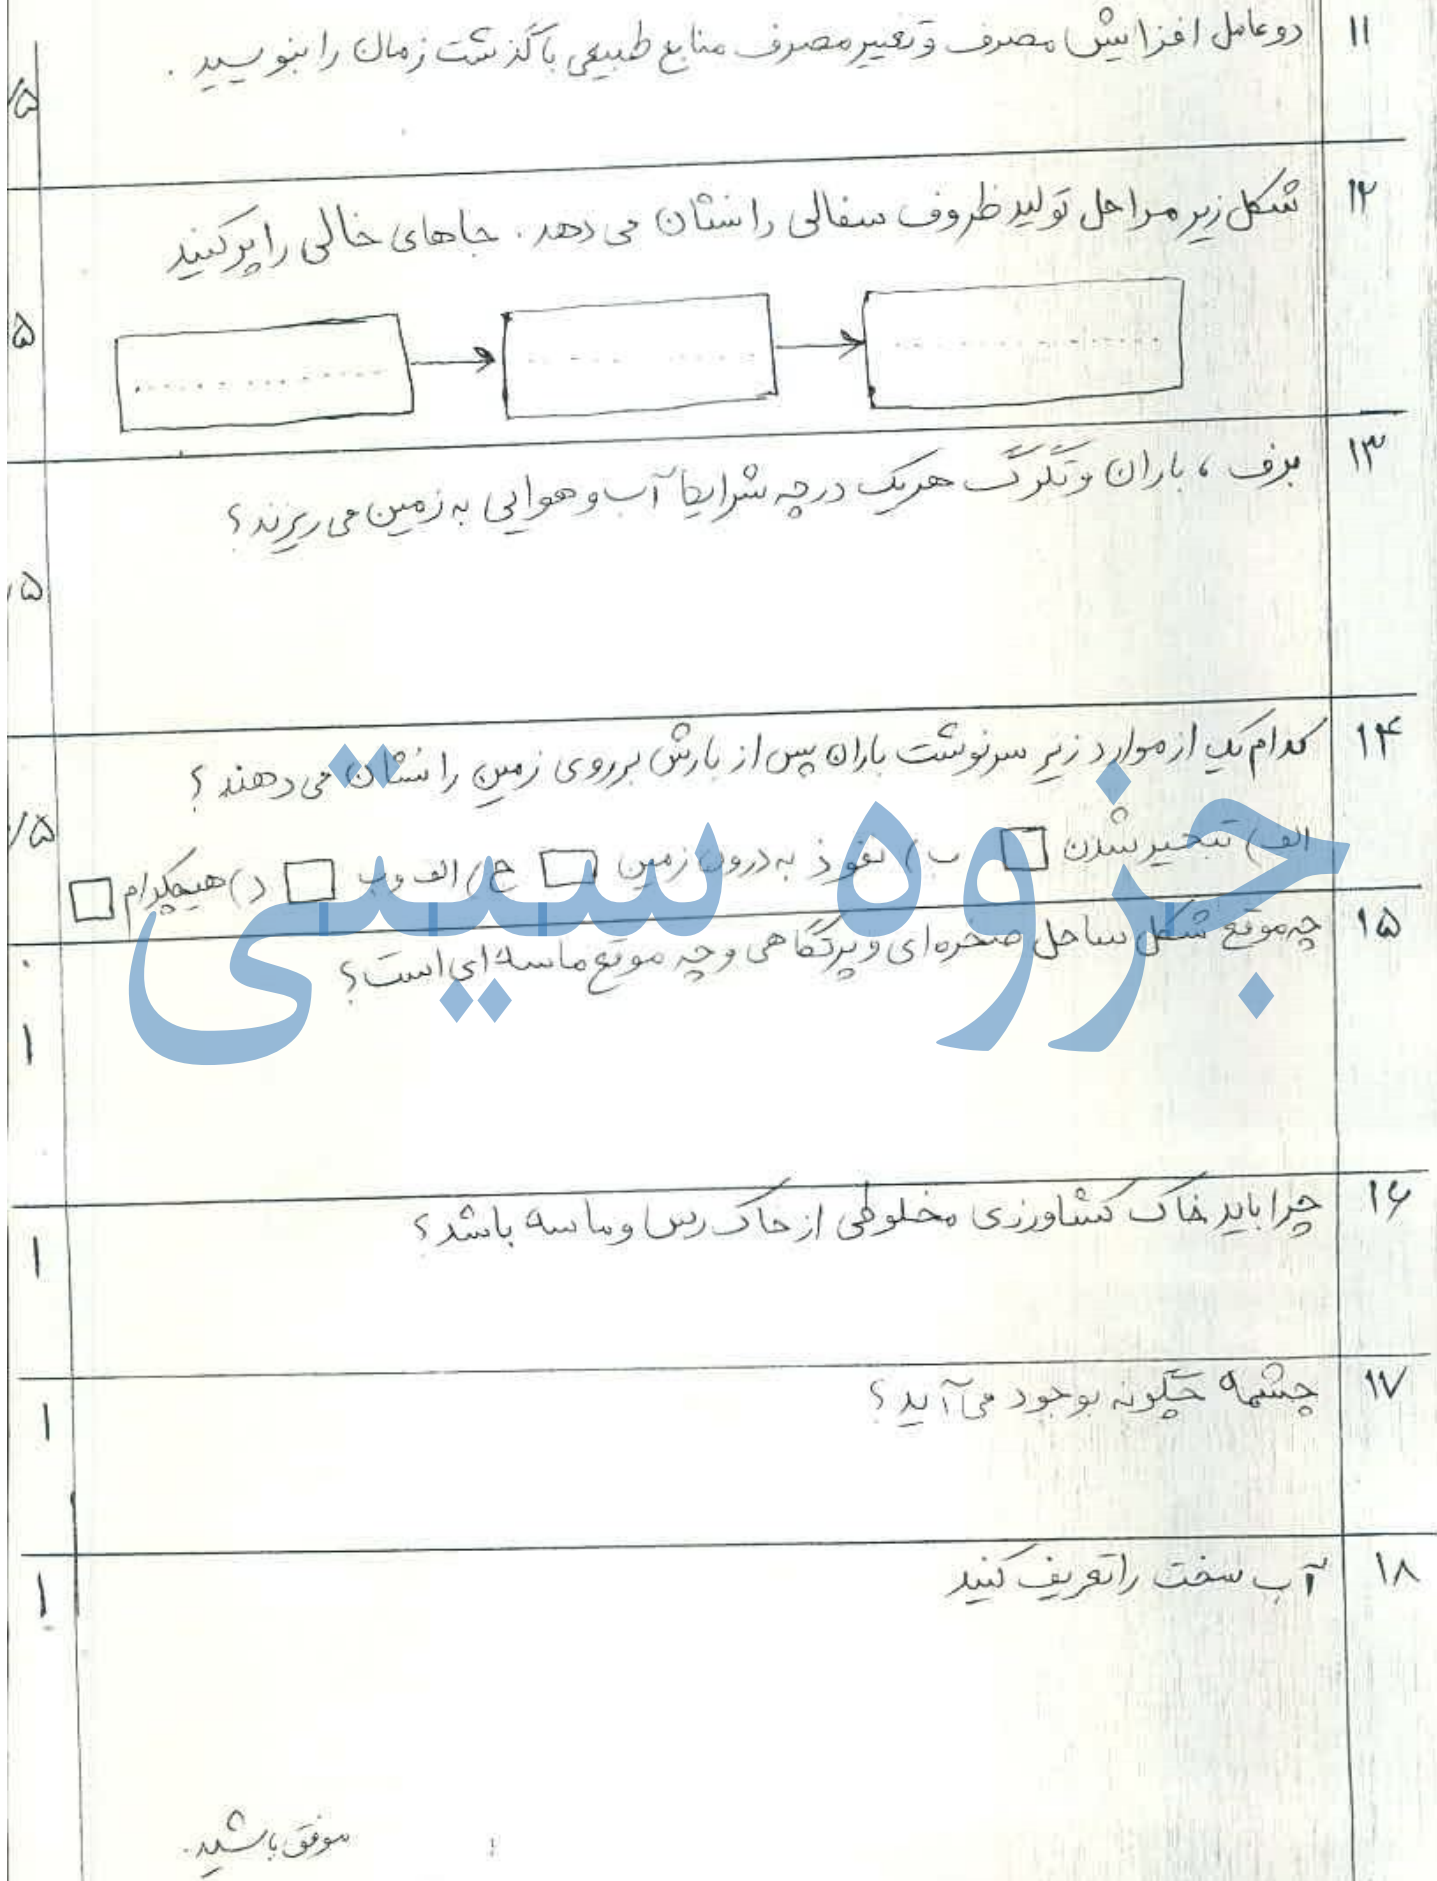 ۱۱ دو عامل افزایش مصرف و تغییر مصرف منابع طبیعی با گذشت زمان را بنویسید .
۵/
۱۲ شکل زیر مراحل تولید ظروف سفالی را نشان می دهد . جاهای خالی را پر کنید
۵
۱۳ برف ، باران و تگرگ هریک در چه شرایط آب و هوایی به زمین می ریزند ؟
۵/
۱۴ کدام یک از موارد زیر سرنوشت باران پس از بارش بر روی زمین را نشان می دهند ؟
۵/
الف) تبخیر شدن ب) نفوذ به درون زمین ج) الف و ب د) هیچکدام
جزوه سیتی
۱۵ چه موقع شکل ساحل صخره ای و پرتگاهی و چه موقع ماسه ای است ؟
۱
۱۶ چرا باید خاک کشاورزی مخلوطی از خاک رس و ماسه باشد ؟
۱
۱۷ چشمه چگونه بوجود می آید ؟
۱
۱۸ آب سخت را تعریف کنید
۱
موفق باشید.